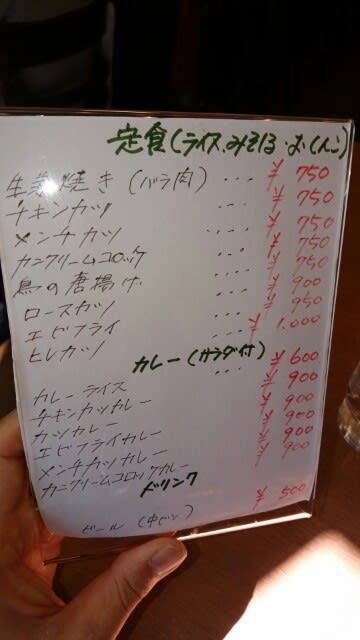 定食(ライス、みそ汁、おしんこ)
生姜焼き(バラ肉) ... ¥750
チキンカツ ... ¥750
メンチカツ ... ¥750
カニクリームコロッケ ... ¥750
鳥の唐揚げ ... ¥750
ロースカツ ... ¥900
エビフライ ... ¥950
ヒレカツ ... ¥1.000
カレー(サラダ付)
カレーライス ... ¥600
チキンカツカレー ¥900
カツカレー ¥900
エビフライカレー ¥900
メンチカツカレー ¥900
カニクリームコロッケカレー ¥900
ドリンク
ビール(中ビン) ¥500